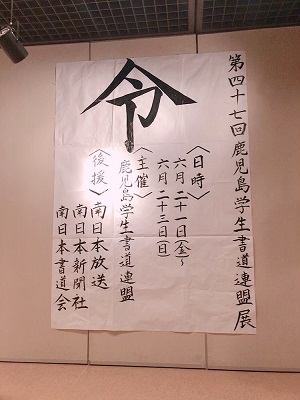 第四十七回鹿児島学生書道連盟展
令
〈日時〉
六月二十一日(金)~
六月二十三日(日)
〈主催〉
鹿児島学生書道連盟
〈後援〉
南日本放送
南日本新聞社
南日本書道会